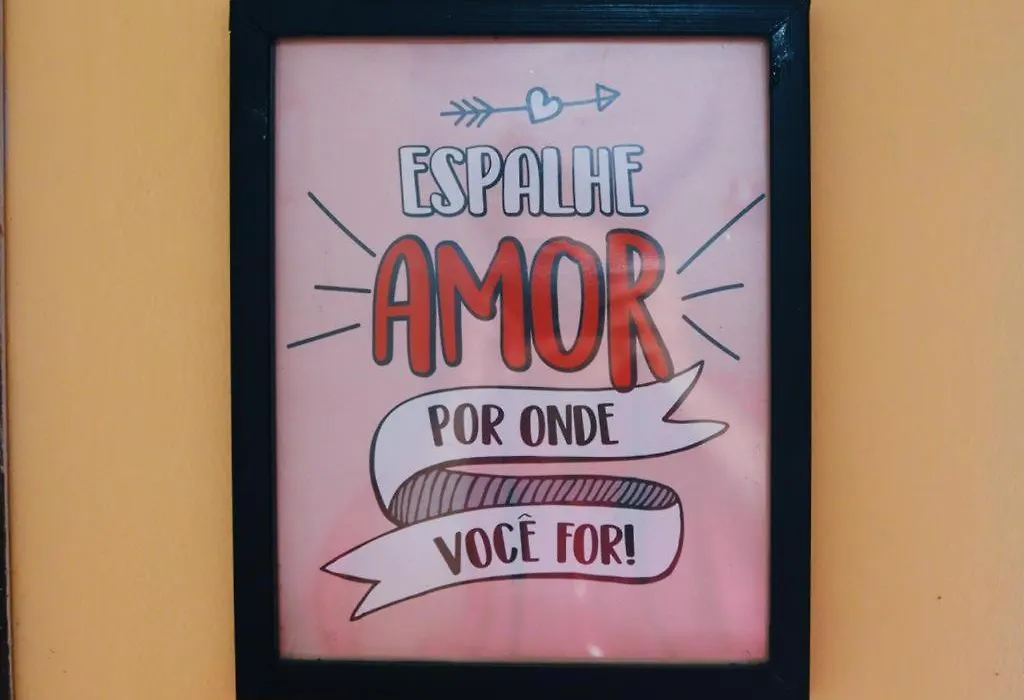 ESPALHE
AMOR
POR ONDE
VOCÊ FOR!